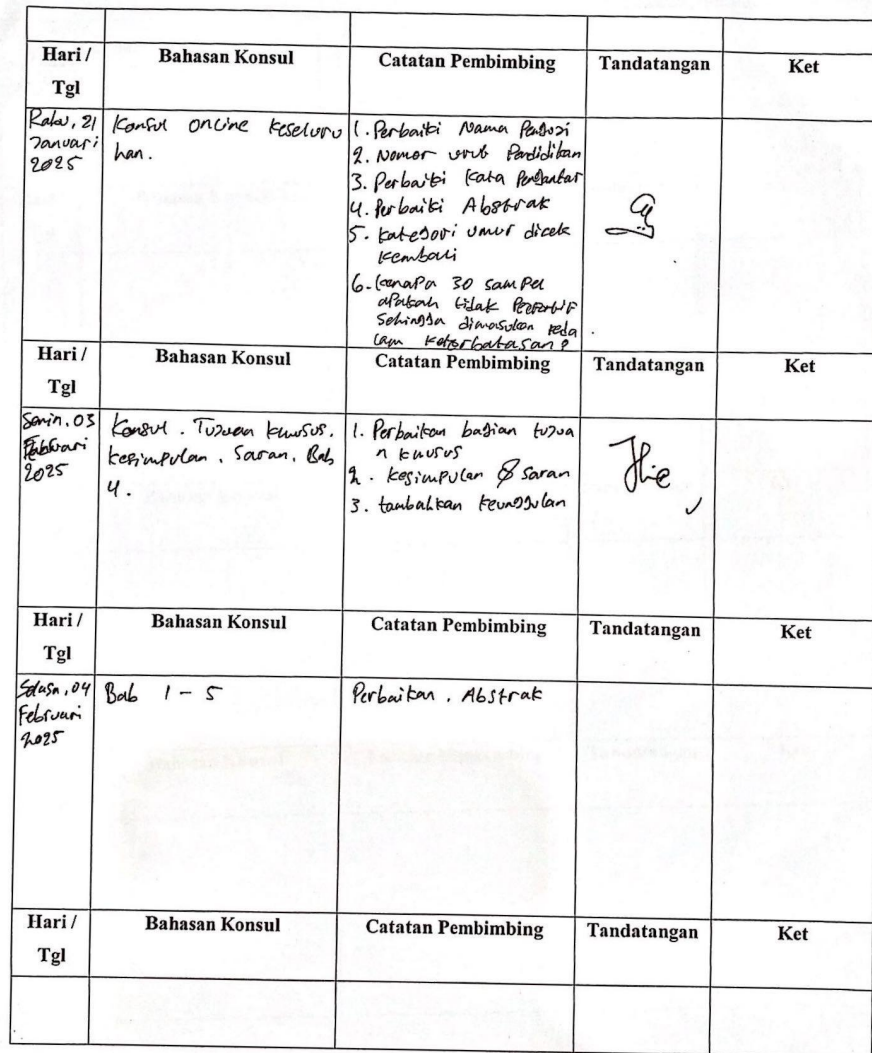 Hari / Bahasan Konsul Catatan Pembimbing Tandatangan Ket
Tgl
Rabu, 21 Januari 2025
Konsul online keseluru
han.
1. Perbaiki Nama
2. Nomor urut Pendidikan
3. Perbaiki Kata Pengantar
4. Perbaiki Abstrak
5. kategori umur dicek
kembali
6. kenapa 30 sampel
apakah tidak
sehingga dimasukan keda
lam keterbatasan?
Hari / Bahasan Konsul Catatan Pembimbing Tandatangan Ket
Tgl
Senin, 03
Februari
2025
Konsul. Tujuan khusus,
kesimpulan. Saran, Bab
4.
1. Perbaikan bagian tujua
n khusus
2. kesimpulan & saran
3. tambahkan keunggulan
Hari / Bahasan Konsul Catatan Pembimbing Tandatangan Ket
Tgl
Selasa, 04
Februari
2025
Bab 1 - 5
Perbaikan. Abstrak
Hari / Bahasan Konsul Catatan Pembimbing Tandatangan Ket
Tgl